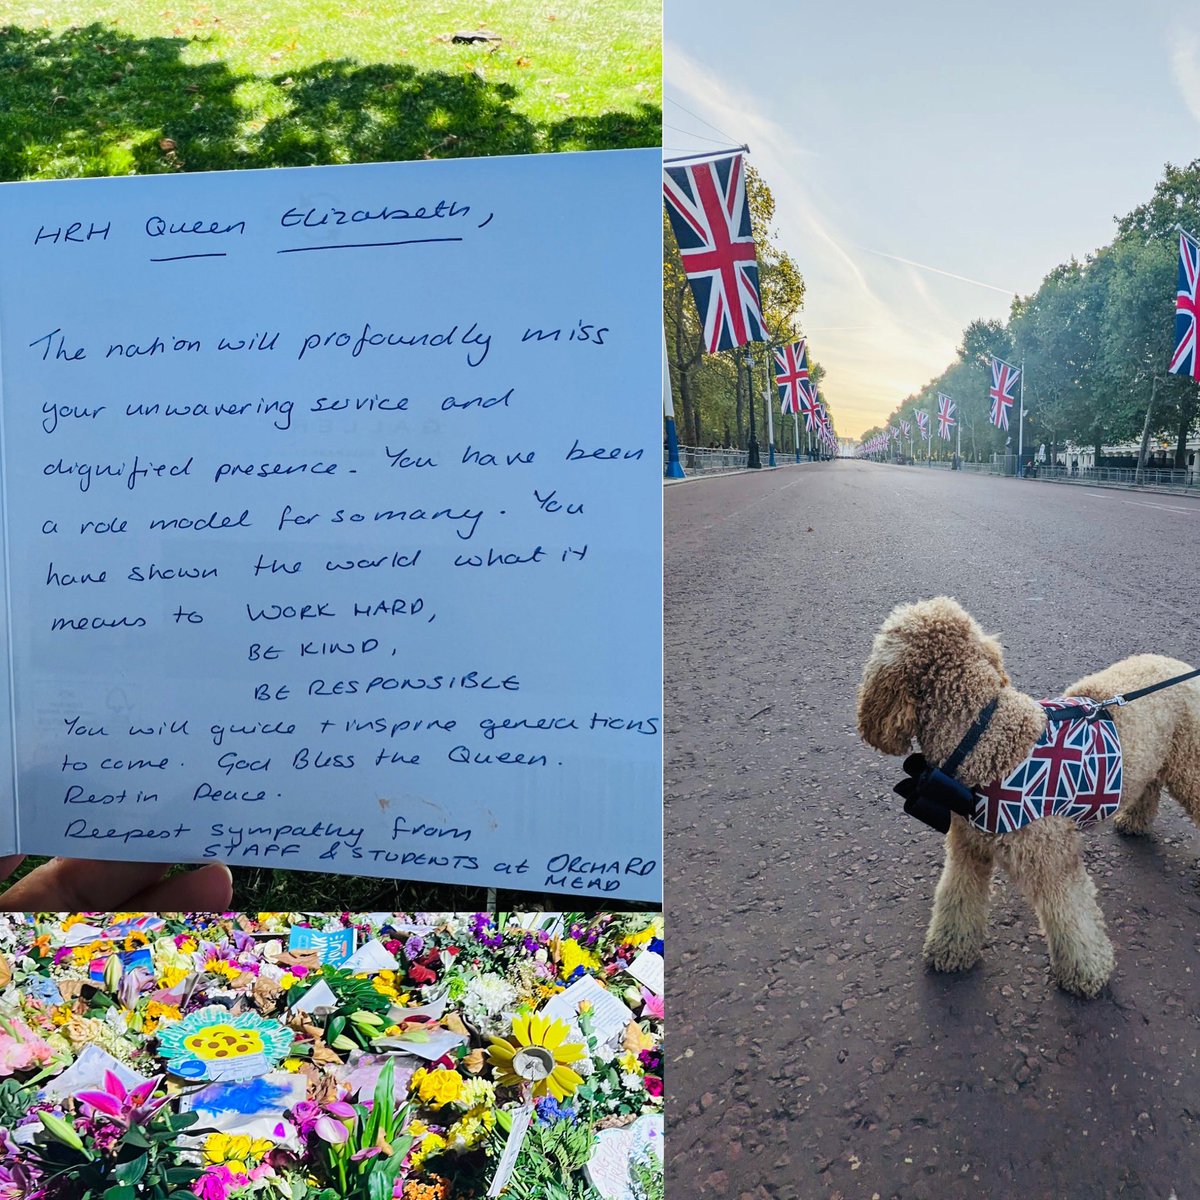 HRH Queen Elizabeth,
The nation will profoundly miss
your unwavering service and
dignified presence. You have been
a role model for so many. You
have shown the world what it
means to WORK HARD,
BE KIND,
BE RESPONSIBLE
You will guide + inspire generations
to come. God Bless the Queen.
Rest in Peace.
Deepest sympathy from
STAFF & STUDENTS at ORCHARD
MEAD